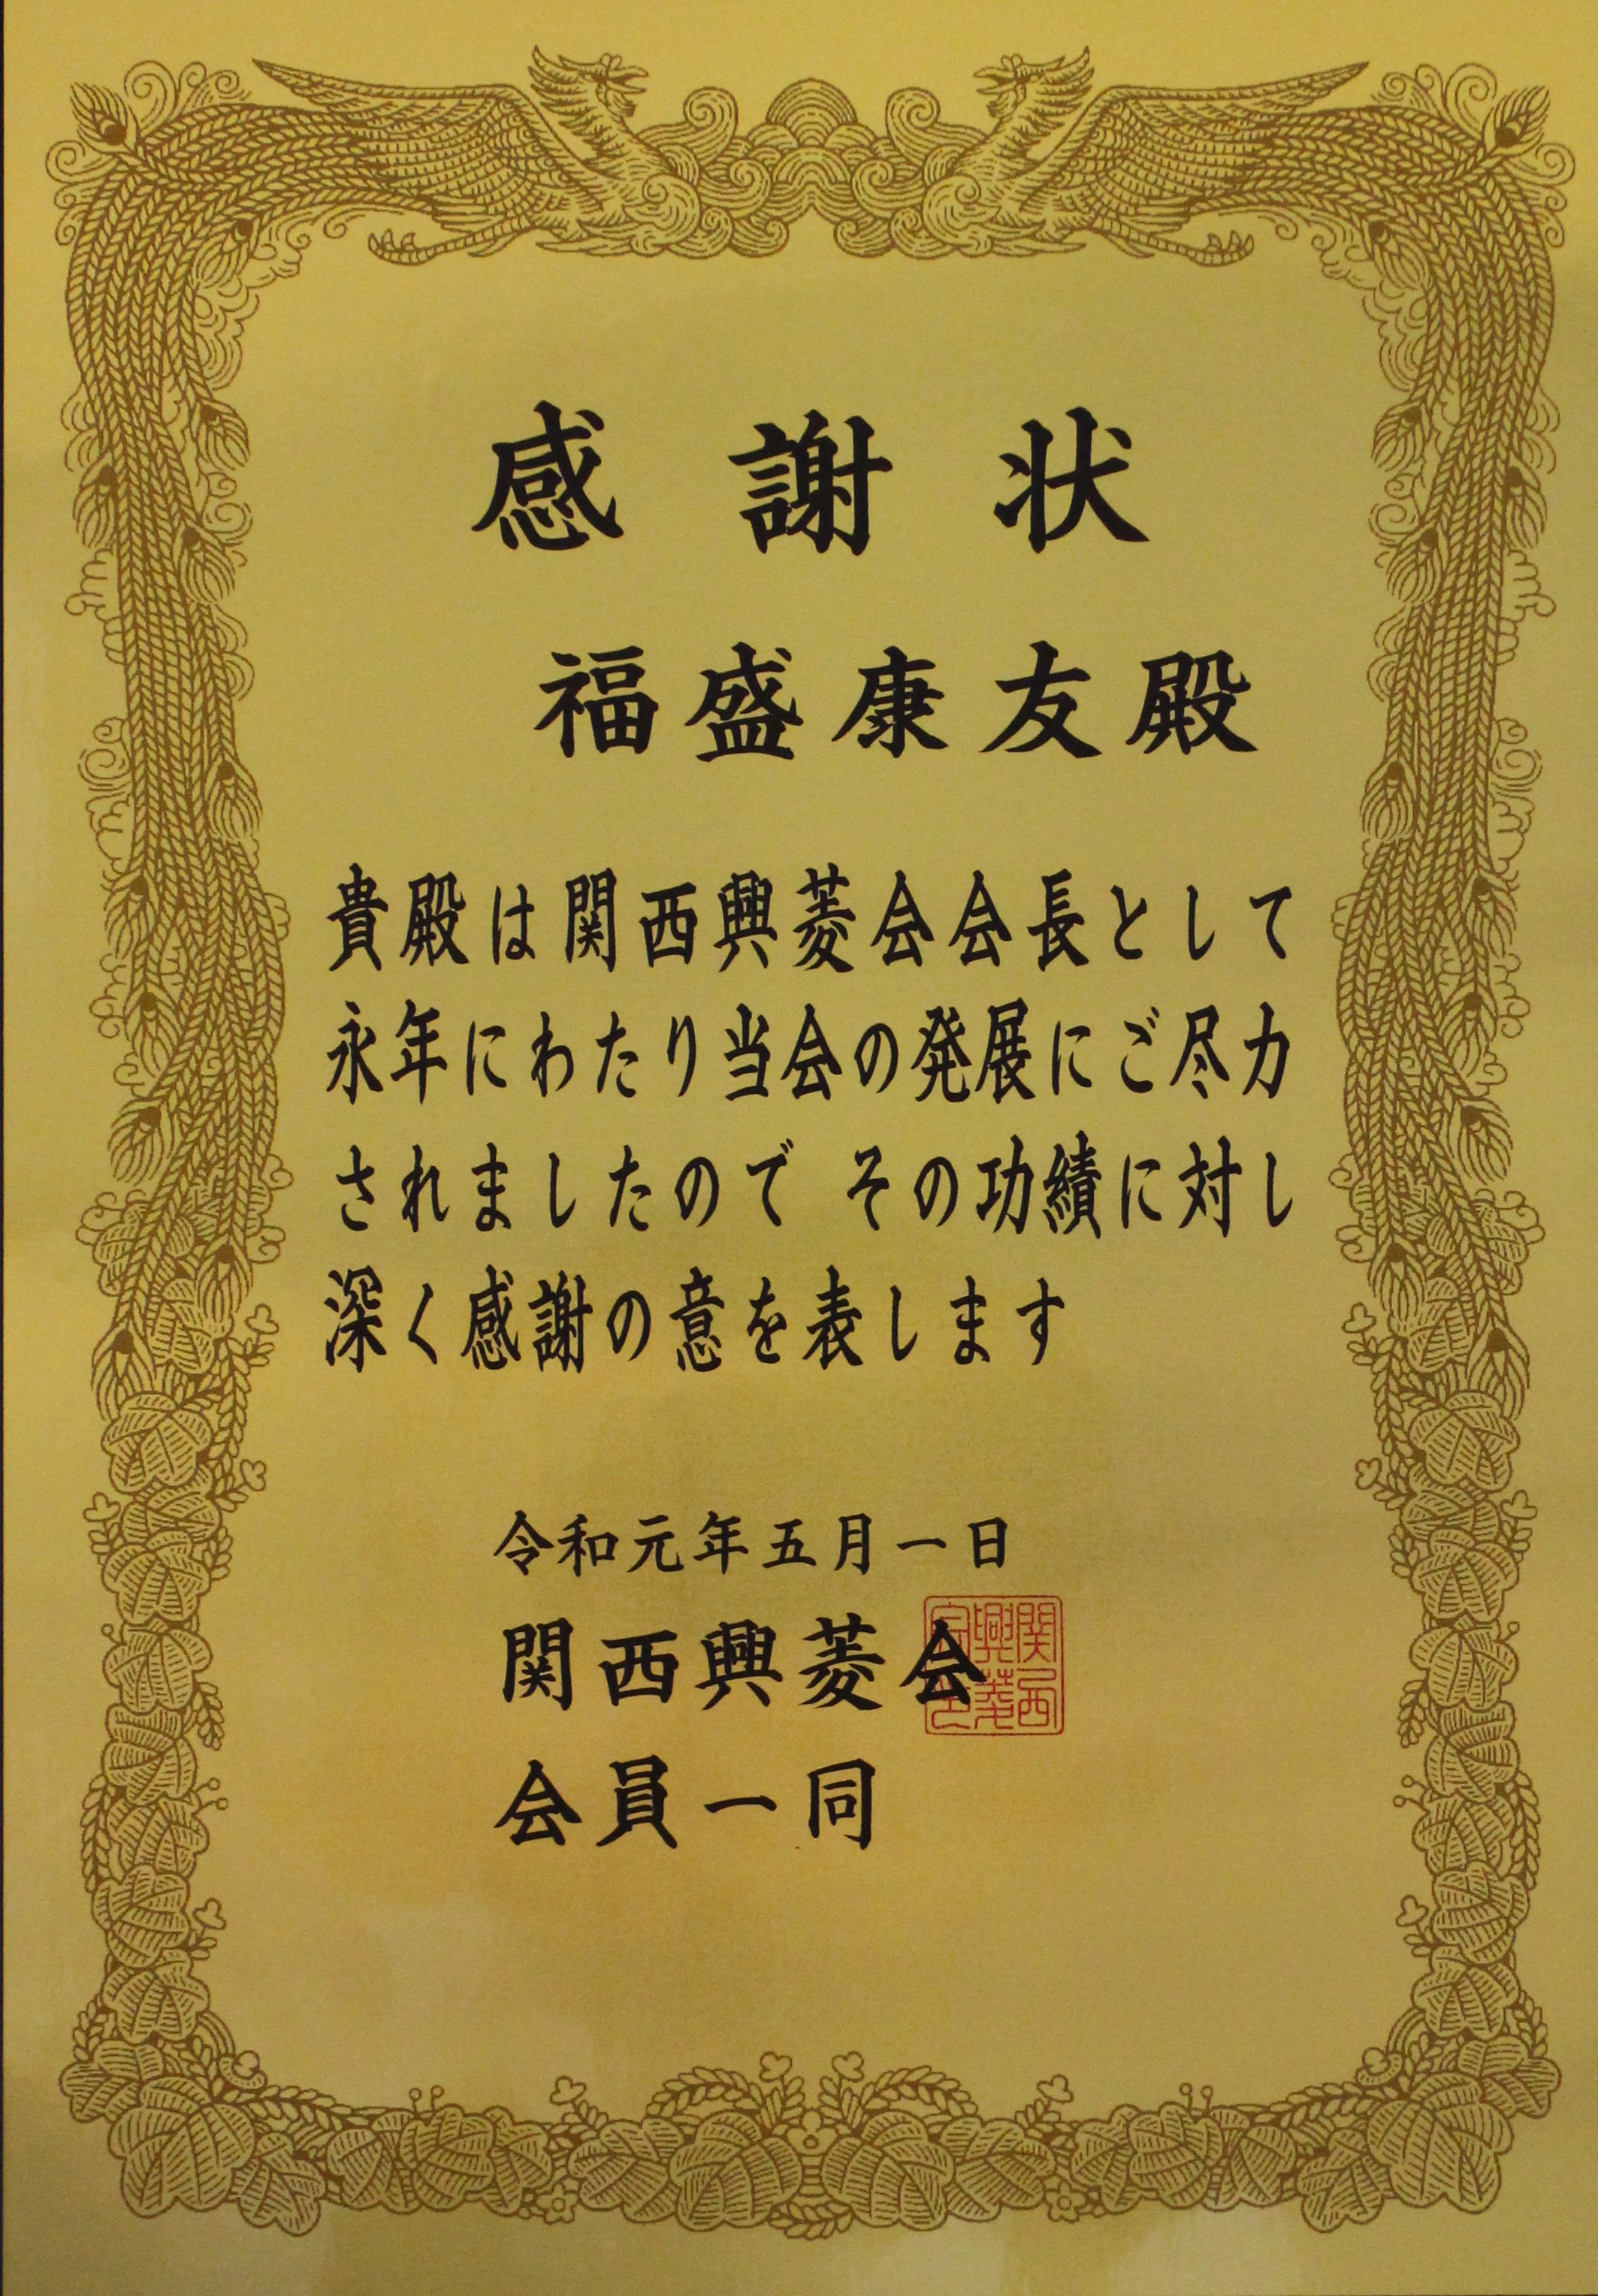 感謝状
福盛康友殿
貴殿は関西興菱会会長として
永年にわたり当会の発展にご尽力
されましたので その功績に対し
深く感謝の意を表します
令和元年五月一日
関西興菱会
会員一同